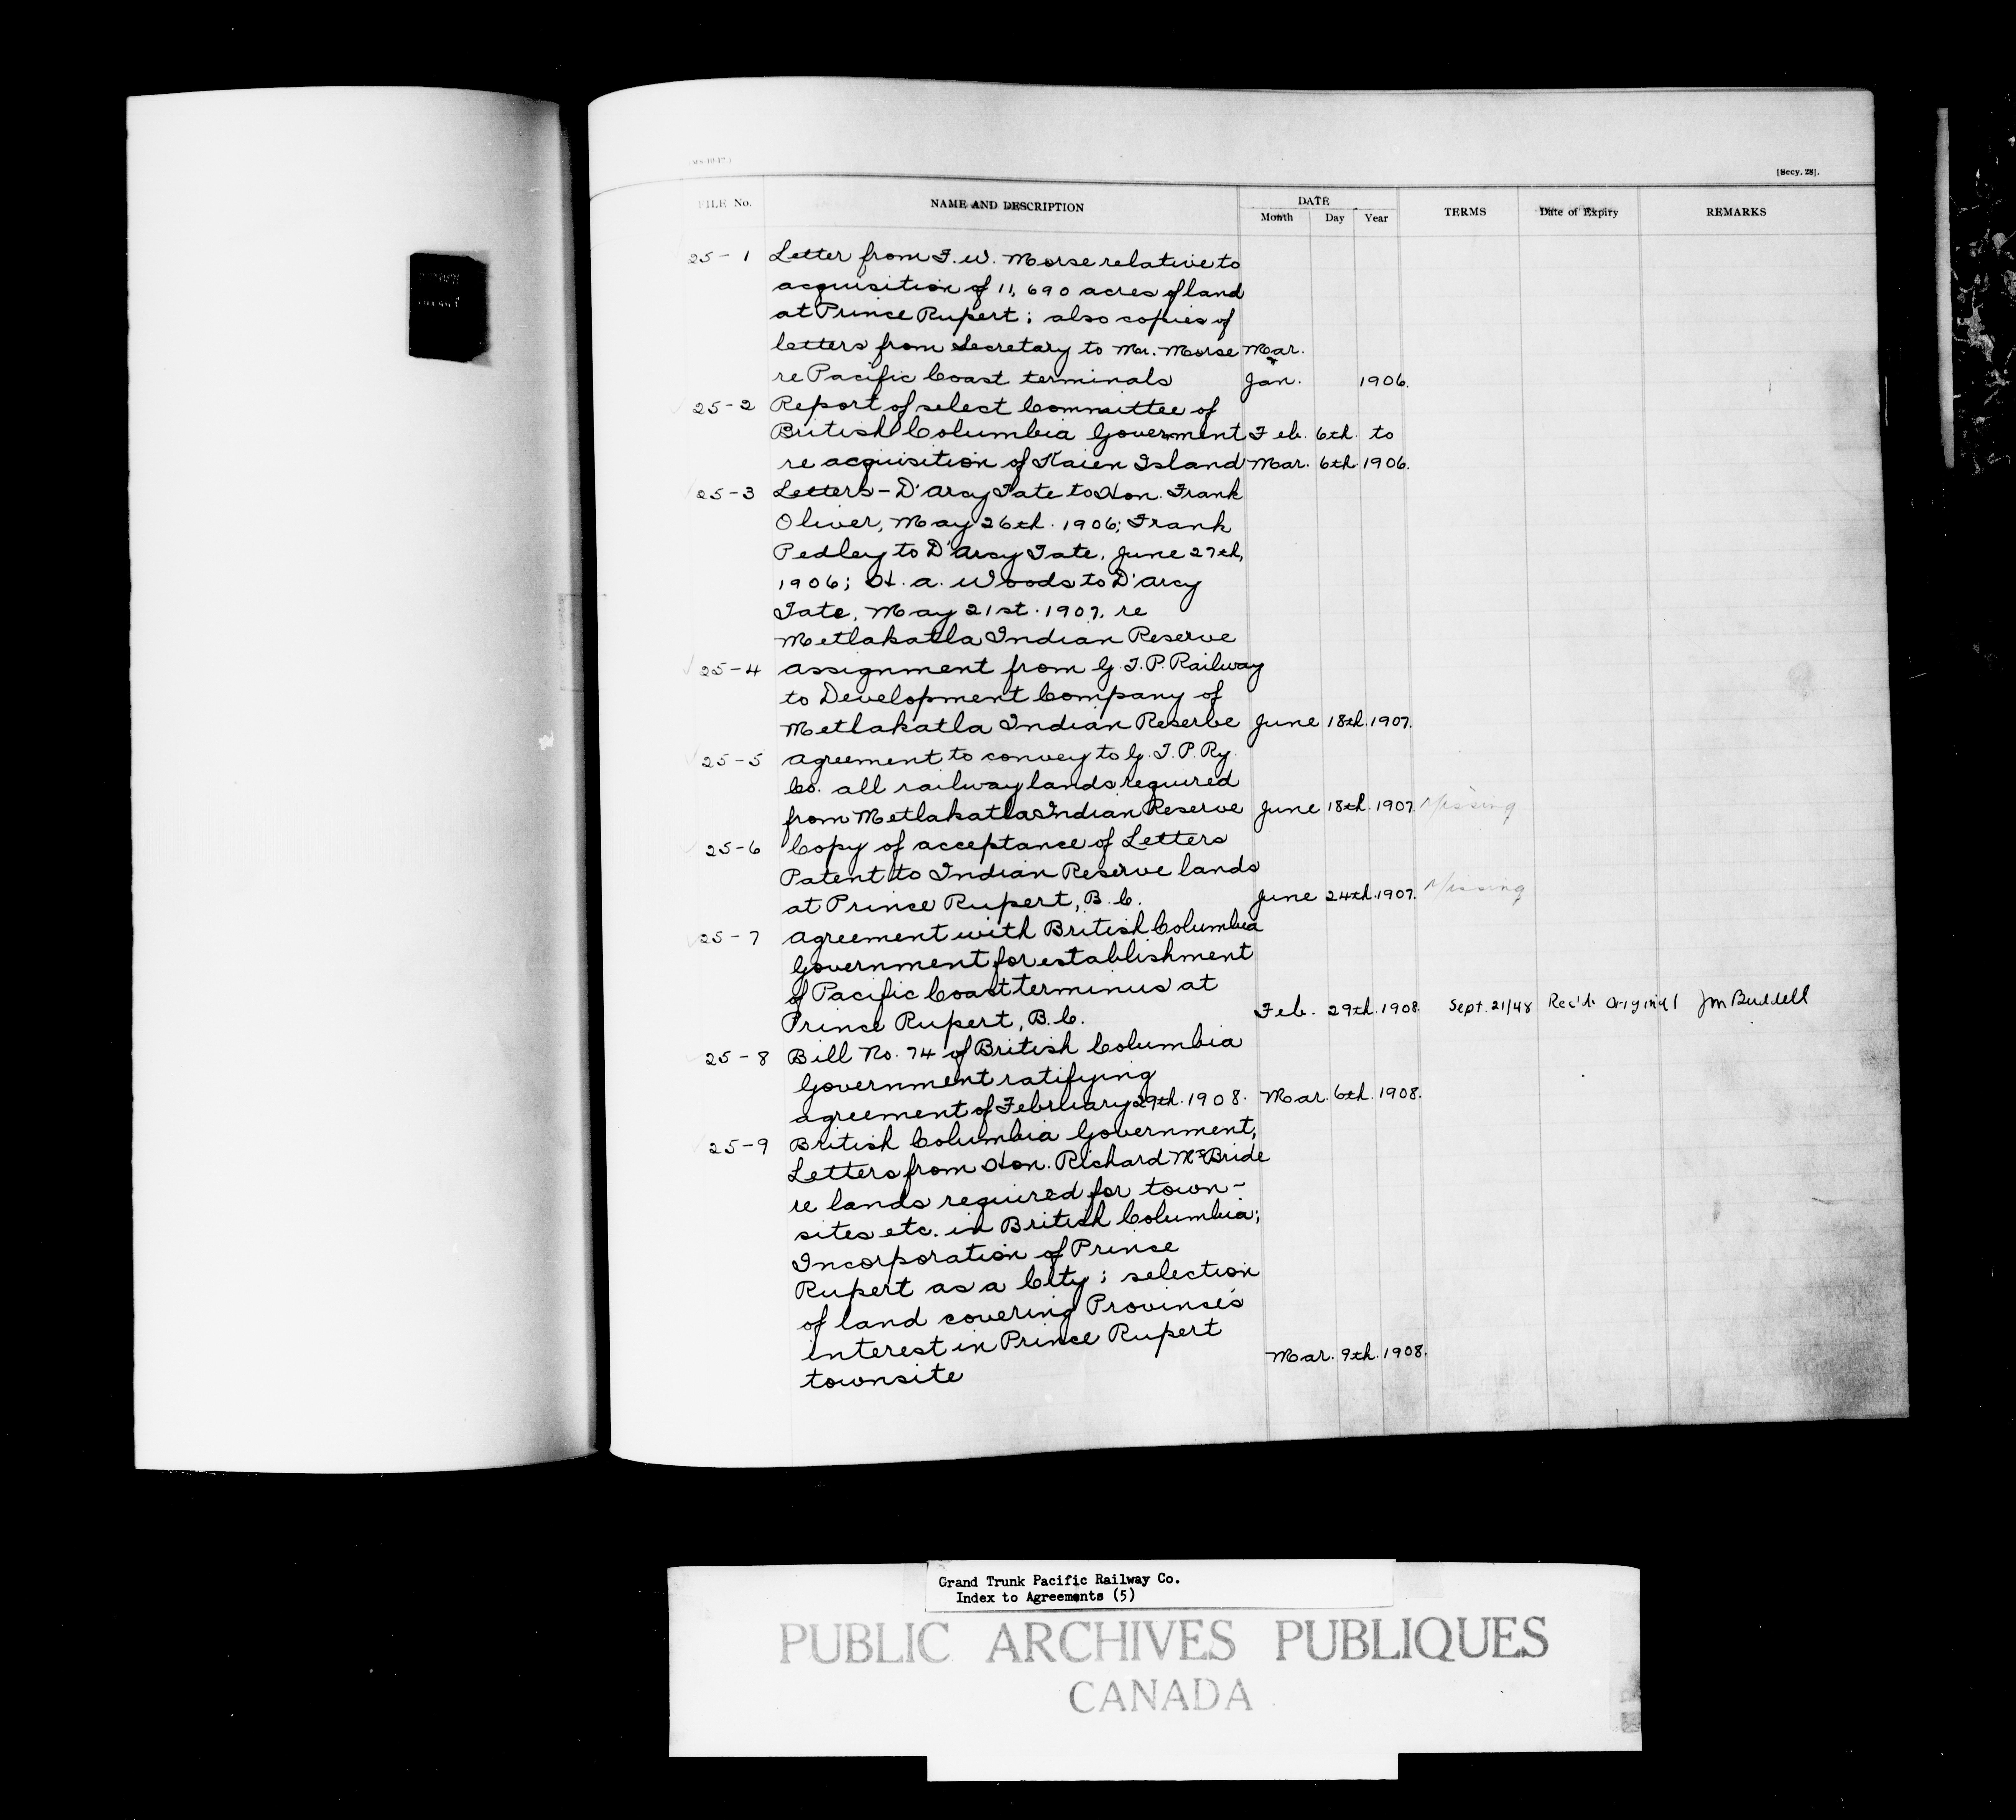 [Secy. 28].
FILE No. NAME AND DESCRIPTION DATE TERMS Date of Expiry REMARKS
Month Day Year
25-1 Letter from F. W. Morse relative to
acquisition of 11,690 acres of land
at Prince Rupert; also copies of
letters from Secretary to Mr. Morse Mar.
re Pacific Coast terminals Jan. 1906.
25-2 Report of select Committee of
British Columbia Government Feb. 6th. to
re acquisition of Kaien Island Mar. 6th 1906.
25-3 Letters - D'Arcy Tate to Hon. Frank
Oliver, May 26th. 1906; Frank
Pedley to D'Arcy Tate, June 27th,
1906; H. A. Woods to D'Arcy
Tate, May 21st. 1907, re
Metlakatla Indian Reserve
25-4 Assignment from G. T. P. Railway
to Development Company of
Metlakatla Indian Reserve June 18th. 1907.
25-5 Agreement to convey to G. T. P. Ry.
Co. all railway lands required
from Metlakatla Indian Reserve June 18th. 1907. Missing
25-6 Copy of acceptance of Letters
Patent to Indian Reserve lands
at Prince Rupert, B.C. June 24th. 1907. Missing
25-7 Agreement with British Columbia
Government for establishment
of Pacific Coast terminus at
Prince Rupert, B.C. Feb. 29th. 1908. Sept. 21/48 Rec'd. Original JM Buddell
25-8 Bill No. 74 of British Columbia
Government ratifying
agreement of February 29th. 1908. Mar. 6th. 1908.
25-9 British Columbia Government,
Letters from Hon. Richard McBride
re lands required for town-
sites etc. in British Columbia;
Incorporation of Prince
Rupert as a City; selection
of land covering Provinse's
interest in Prince Rupert
townsite Mar. 9th. 1908.
Grand Trunk Pacific Railway Co.
Index to Agreements (5)
PUBLIC ARCHIVES PUBLIQUES
CANADA